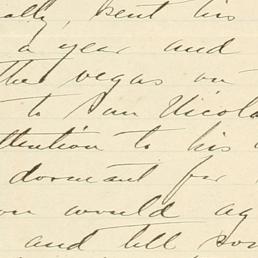 ally, sent his
a year and
the vegas on
to San Nicola
ttention to his
dormant for
on would ag
and till so